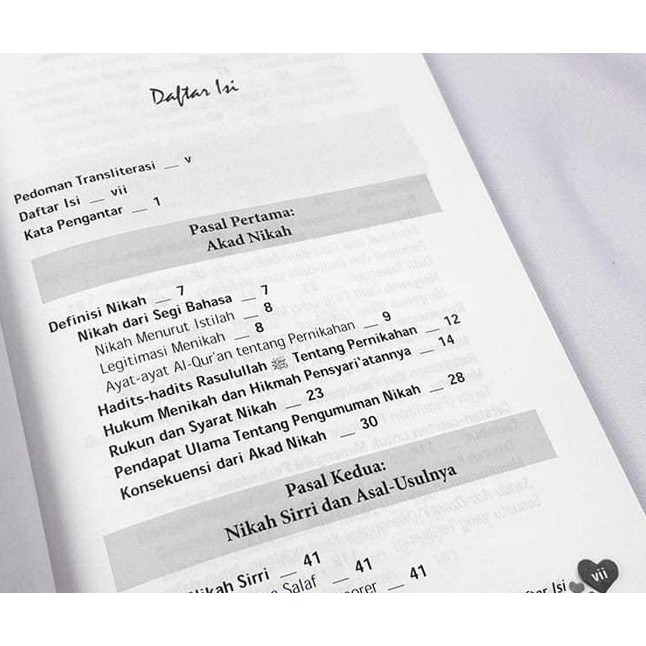 Daftar Isi
Pedoman Transliterasi __ v
Daftar Isi __ vii
Kata Pengantar __ 1
Pasal Pertama:
Akad Nikah
Definisi Nikah __ 7
Nikah dari Segi Bahasa __ 7
Nikah Menurut Istilah __ 8
Legitimasi Menikah __ 8
Ayat-ayat Al-Qur'an tentang Pernikahan __ 9
Hadits-hadits Rasulullah ﷺ Tentang Pernikahan __ 12
Hukum Menikah dan Hikmah Pensyari'atannya __ 14
Rukun dan Syarat Nikah __ 23
Pendapat Ulama Tentang Pengumuman Nikah __ 28
Konsekuensi dari Akad Nikah __ 30
Pasal Kedua:
Nikah Sirri dan Asal-Usulnya
Nikah Sirri __ 41
Salaf __ 41
__ 41
Isi vii